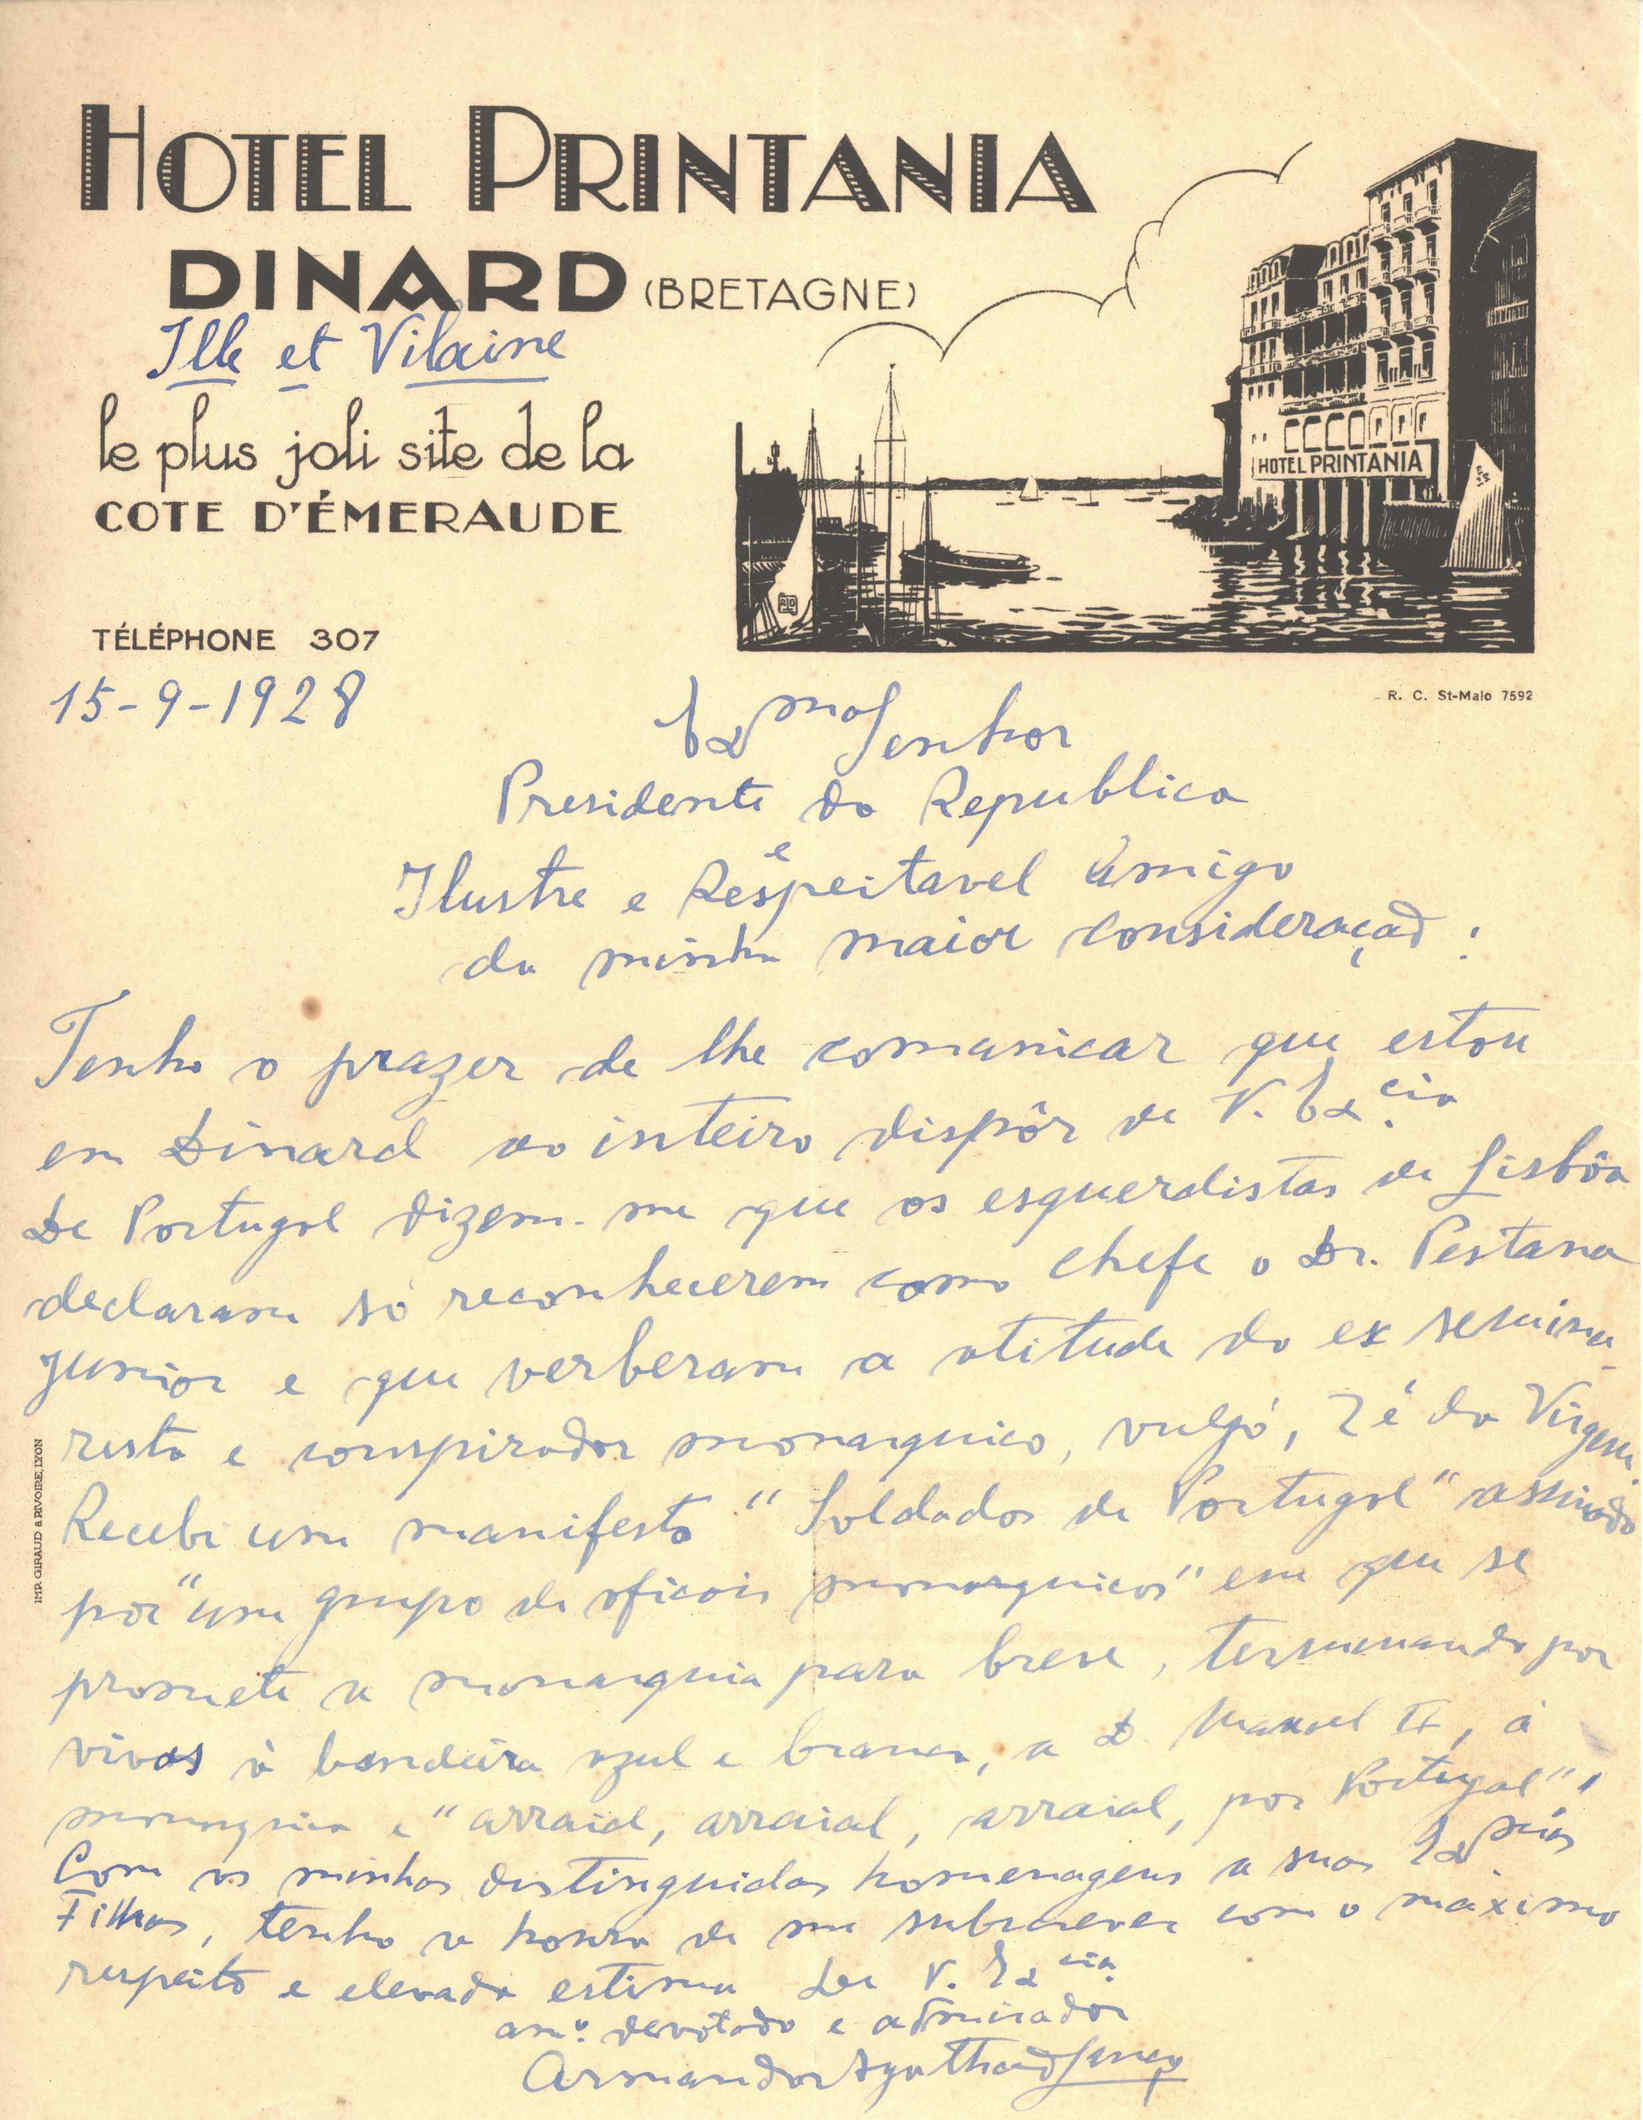 HOTEL PRINTANIA
DINARD (BRETAGNE)
Ille et Vilaine
le plus joli site de la
COTE D'ÉMERAUDE
HOTEL PRINTANIA
TÉLÉPHONE 307
R. C. St-Malo 7592
15-9-1928
Exmo Senhor
Presidente da Republica
Ilustre e Respeitavel Amigo
da minha maior consideração:
Tenho o prazer de lhe comunicar que estou
em Dinard ao inteiro dispôr de V. Ex.cia
De Portugal dizem-me que os esquerdistas de Lisbôa
declaram só reconhecerem como chefe o Dr. Pestana
Junior e que verberam a atitude do ex semina-
rista e conspirador monarquico, vulgo, Zé do Virgem.
Recebi um manifesto "Soldados de Portugal" assinado
por "um grupo de oficais monarquicos" em que se
promete a monarquia para breve, terminando por
vivas á bandeira azul e branca, a D. Manuel II, á
monarquia e "arraial, arraial, arraial, por Portugal"!
Com as minhas distinguidas homenagens a suas Ex.mas
Filhas, tenho a honra de me subscrever com o máximo
respeito e elevada estima De V. Ex.cia
am.º devotado e admirador
Armando Agatão Lança
IMP. GIRAUD & RIVOIRE, LYON